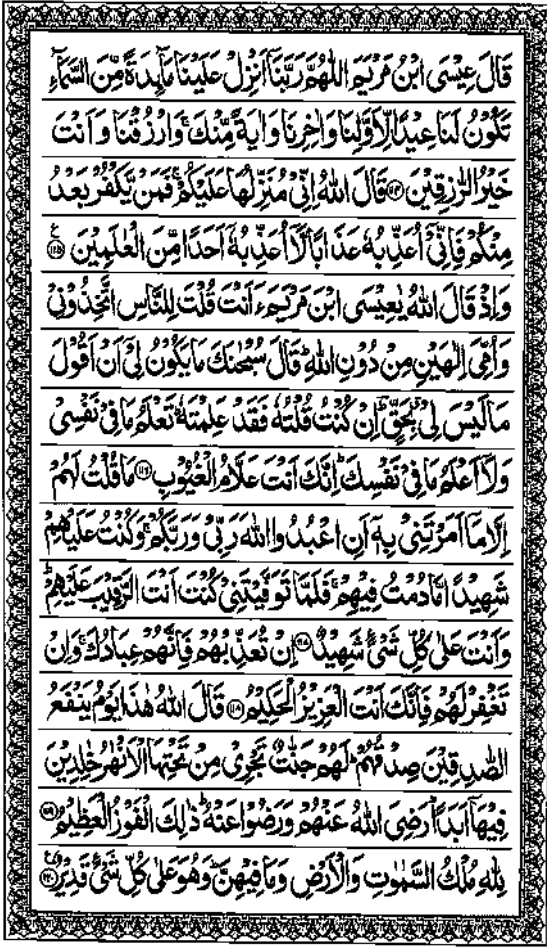 قَالَ عِيْسَى ابْنُ مَرْيَمَ اللّٰهُمَّ رَبَّنَاۤ اَنْزِلْ عَلَيْنَا مَآئِدَةً مِّنَ السَّمَآءِ
تَكُوْنُ لَنَا عِيْدًا لِّاَوَّلِنَا وَاٰخِرِنَا وَاٰيَةً مِّنْكَ ۚ وَارْزُقْنَا وَاَنْتَ
خَيْرُ الرّٰزِقِيْنَ ﴿۱۱۴﴾ قَالَ اللّٰهُ اِنِّيْ مُنَزِّلُهَا عَلَيْكُمْ ۚ فَمَنْ يَّكْفُرْ بَعْدُ
مِنْكُمْ فَاِنِّيْۤ اُعَذِّبُهٗ عَذَابًا لَّاۤ اُعَذِّبُهٗۤ اَحَدًا مِّنَ الْعٰلَمِيْنَ ﴿۱۱۵﴾
وَاِذْ قَالَ اللّٰهُ يٰعِيْسَى ابْنَ مَرْيَمَ ءَاَنْتَ قُلْتَ لِلنَّاسِ اتَّخِذُوْنِيْ
وَاُمِّيَ اِلٰهَيْنِ مِنْ دُوْنِ اللّٰهِ ؕ قَالَ سُبْحٰنَكَ مَا يَكُوْنُ لِيْۤ اَنْ اَقُوْلَ
مَا لَيْسَ لِيْ ۗ بِحَقٍّ ؕ اِنْ كُنْتُ قُلْتُهٗ فَقَدْ عَلِمْتَهٗ ؕ تَعْلَمُ مَا فِيْ نَفْسِيْ
وَلَاۤ اَعْلَمُ مَا فِيْ نَفْسِكَ ؕ اِنَّكَ اَنْتَ عَلَّامُ الْغُيُوْبِ ﴿۱۱۶﴾ مَا قُلْتُ لَهُمْ
اِلَّا مَاۤ اَمَرْتَنِيْ بِهٖۤ اَنِ اعْبُدُوا اللّٰهَ رَبِّيْ وَرَبَّكُمْ ۚ وَكُنْتُ عَلَيْهِمْ
شَهِيْدًا مَّا دُمْتُ فِيْهِمْ ۚ فَلَمَّا تَوَفَّيْتَنِيْ كُنْتَ اَنْتَ الرَّقِيْبَ عَلَيْهِمْ ؕ
وَاَنْتَ عَلٰى كُلِّ شَيْءٍ شَهِيْدٌ ﴿۱۱۷﴾ اِنْ تُعَذِّبْهُمْ فَاِنَّهُمْ عِبَادُكَ ۚ وَاِنْ
تَغْفِرْ لَهُمْ فَاِنَّكَ اَنْتَ الْعَزِيْزُ الْحَكِيْمُ ﴿۱۱۸﴾ قَالَ اللّٰهُ هٰذَا يَوْمُ يَنْفَعُ
الصّٰدِقِيْنَ صِدْقُهُمْ ؕ لَهُمْ جَنّٰتٌ تَجْرِيْ مِنْ تَحْتِهَا الْاَنْهٰرُ خٰلِدِيْنَ
فِيْهَاۤ اَبَدًا ؕ رَضِيَ اللّٰهُ عَنْهُمْ وَرَضُوْا عَنْهُ ؕ ذٰلِكَ الْفَوْزُ الْعَظِيْمُ ﴿۱۱۹﴾
لِلّٰهِ مُلْكُ السَّمٰوٰتِ وَالْاَرْضِ وَمَا فِيْهِنَّ ؕ وَهُوَ عَلٰى كُلِّ شَيْءٍ قَدِيْرٌ ﴿۱۲۰﴾